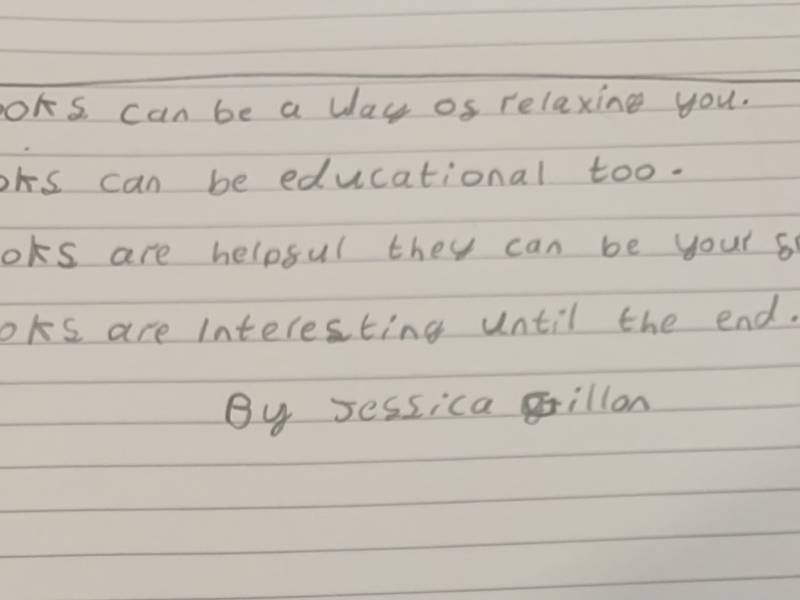 ooks can be a way of relaxing you.
oks can be educational too.
ooks are helpful they can be your
oks are interesting until the end.
By Jessica Gillon